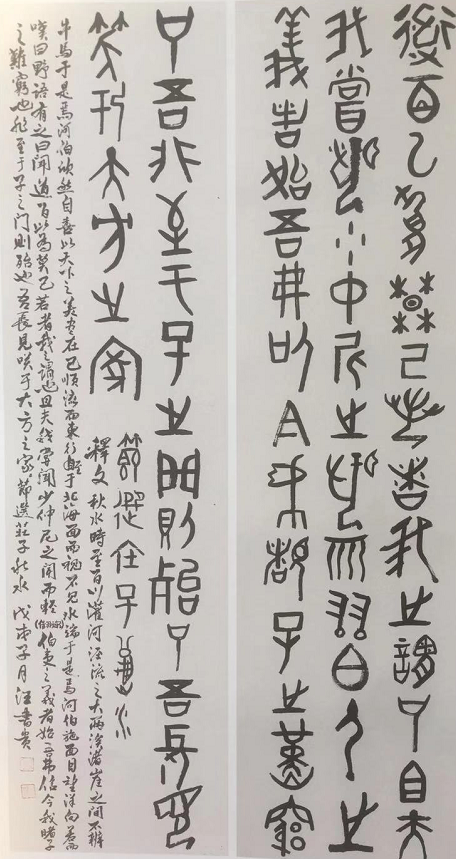 道百以為莫己若者我之謂也且夫
我嘗聞少中尼之聞而輕白夷之
義者始吾弗信今我睹子之難窮
也吾非至于子之門則殆也吾長見
笑于大方之家
節選莊子秋水
釋文 秋水時至百川灌河涇流之大兩涘渚崖之間不辨
牛馬于是焉河伯欣然自喜以天下之美盡在己順流而東行至于北海面而視不見水端于是焉河伯施面目望洋向若而
嘆曰野語有之曰聞道百以為莫己若者我之謂也且夫我嘗聞少仲尼之聞而輕伯夷之義者始吾弗信今我睹子
之難窮也非至于子之門則殆也吾長見笑于大方之家 節選莊子秋水 戊戌子月 汪書貴